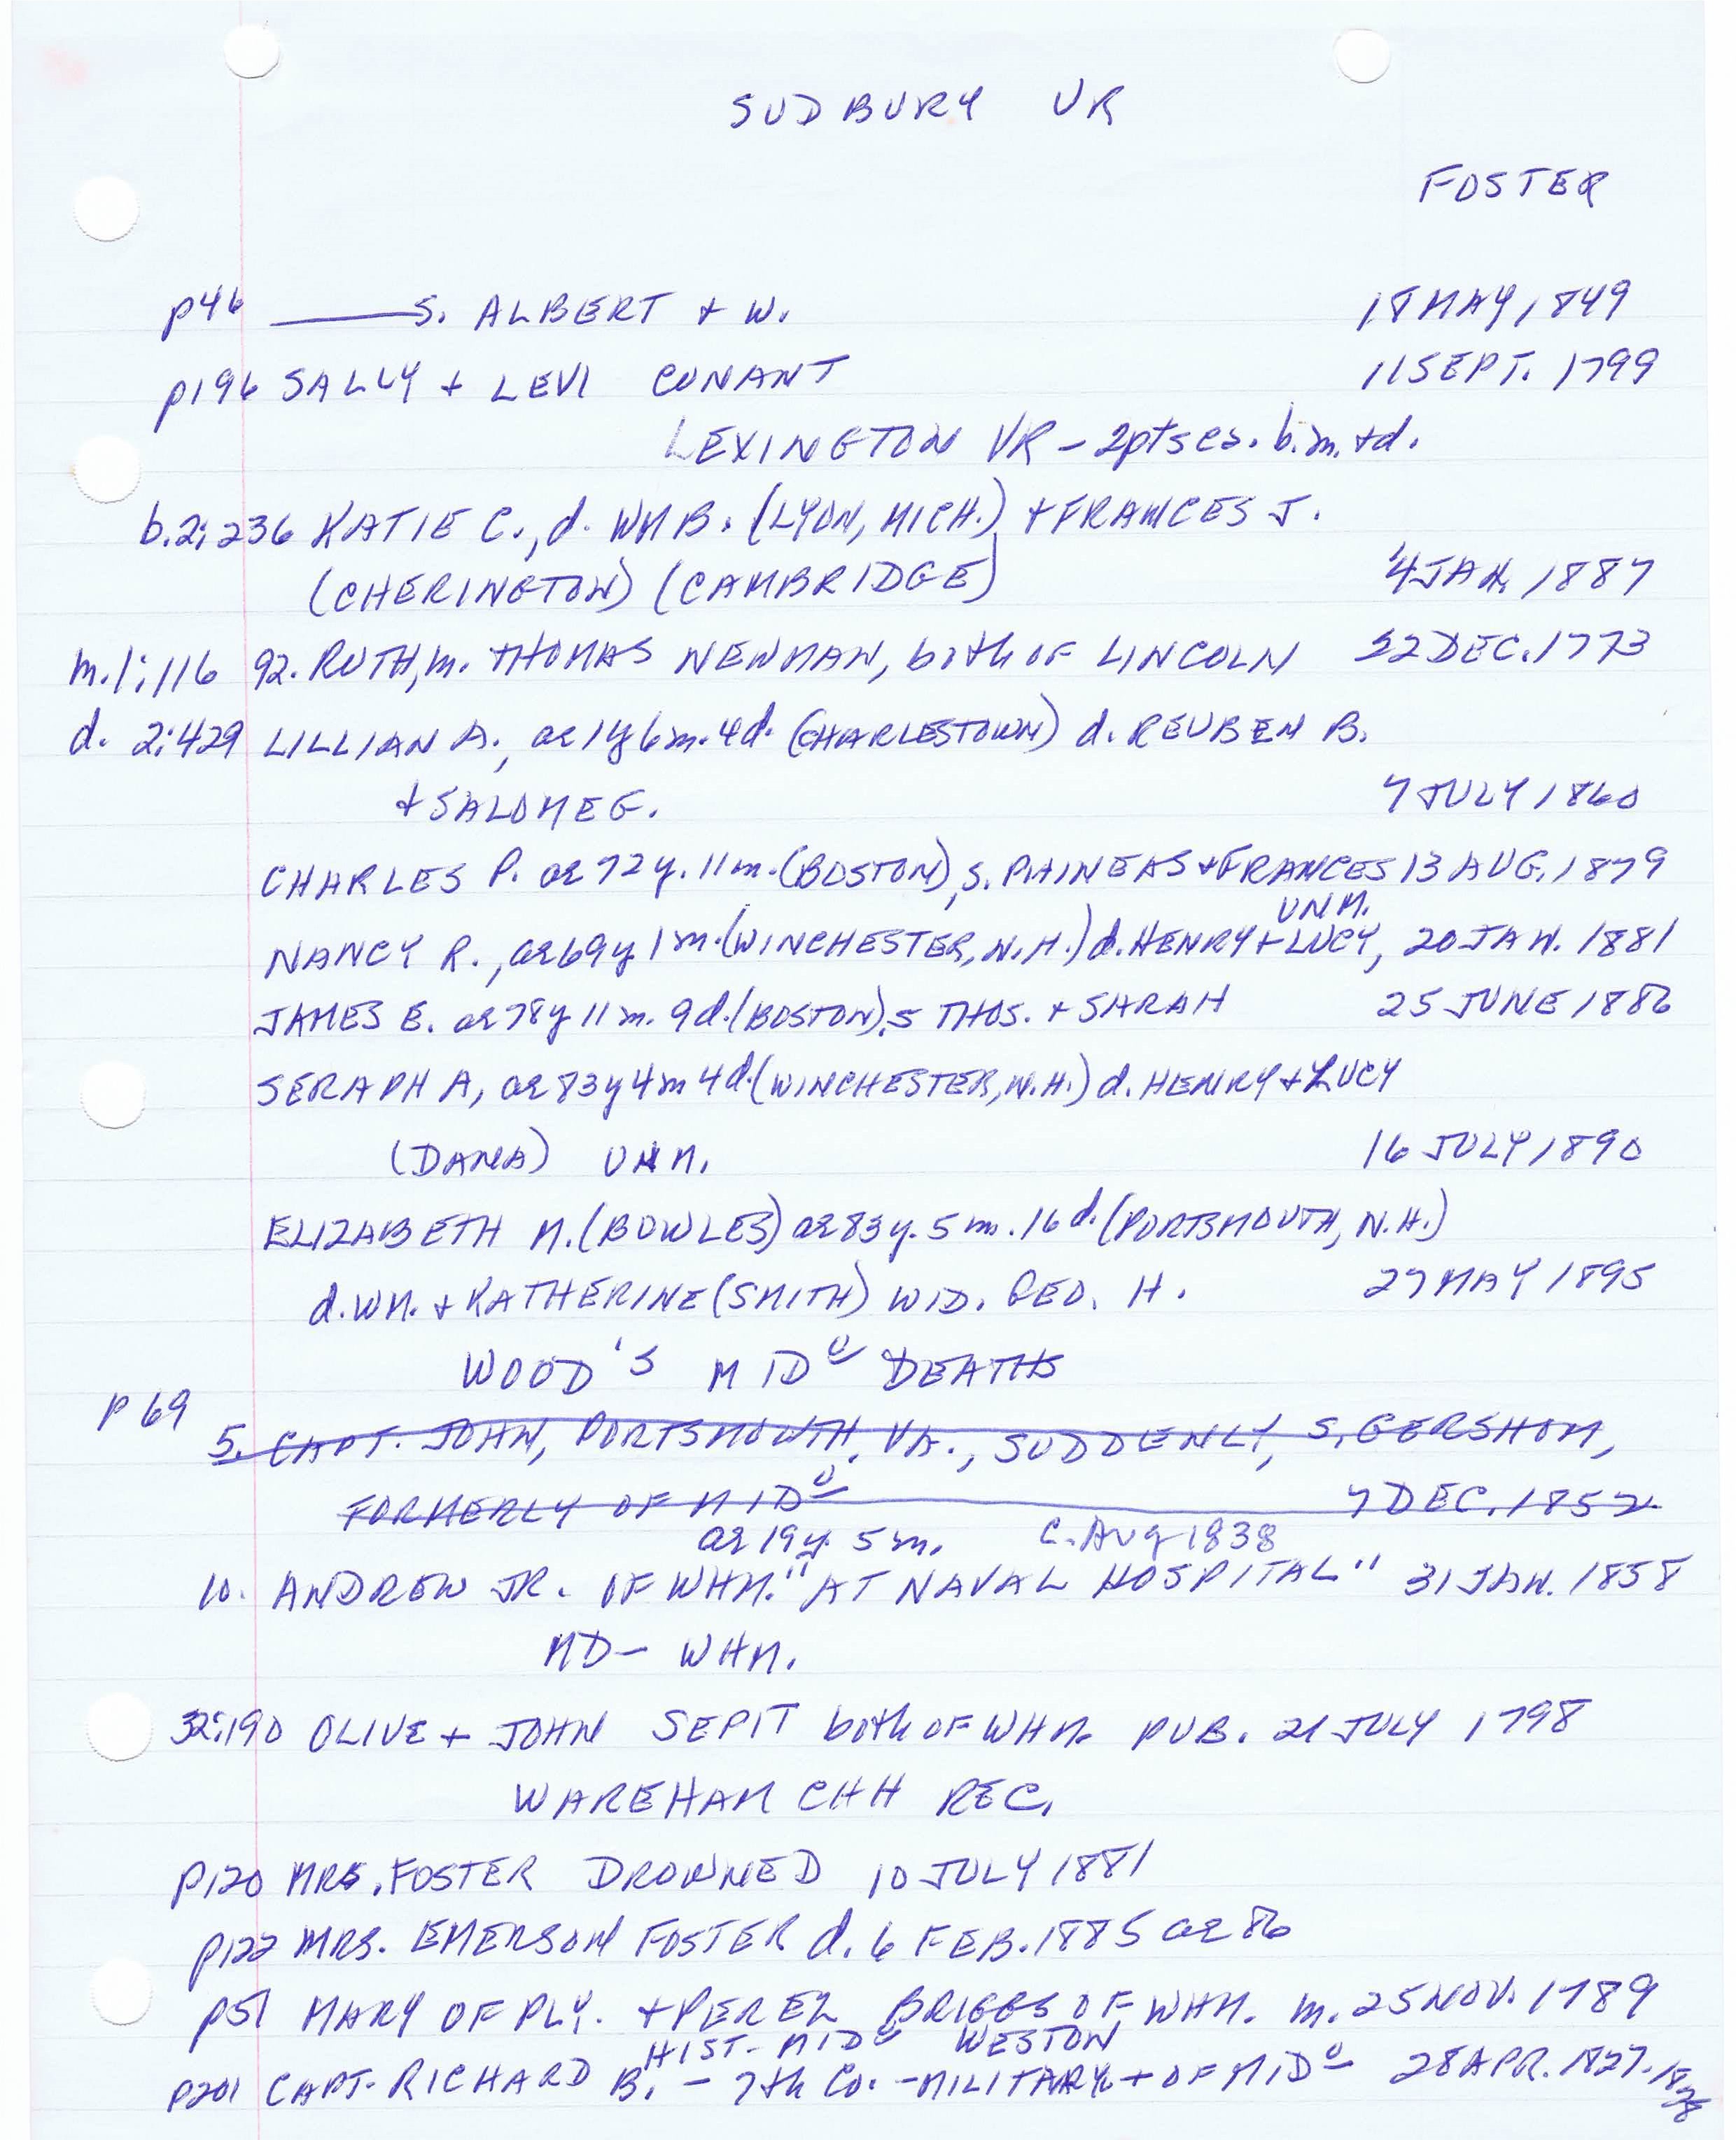 SUDBURY VR
FOSTER
p46 ——— S. ALBERT + W. 18 MAY 1849
p196 SALLY + LEVI CONANT 11 SEPT. 1799
LEXINGTON VR - 2pts es. b.m. + d.
b.2:236 KATIE C., d. WM B. (LYON, MICH.) + FRANCES J.
(CHERINGTON) (CAMBRIDGE) 4 JAN. 1887
m.1:116 92. RUTH, m. THOMAS NEWMAN, both OF LINCOLN 22 DEC. 1773
d. 2:429 LILLIAN A., ae 1y 6m. 4d. (CHARLESTOWN) d. REUBEN B.
+ SALOME G. 7 JULY 1860
CHARLES P. ae 72y. 11m. (BOSTON), S. PHINEAS + FRANCES 13 AUG. 1879
UNM.
NANCY R., ae 69y 1m. (WINCHESTER, N.H.) d. HENRY + LUCY, 20 JAN. 1881
JAMES E. ae 78y 11m. 9d. (BOSTON), S THOS. + SARAH 25 JUNE 1886
SERAPH A, ae 83y 4m 4d. (WINCHESTER, N.H.) d. HENRY + LUCY
(DANA) UNM. 16 JULY 1890
ELIZABETH M. (BOWLES) ae 83y. 5m. 16d. (PORTSMOUTH, N.H.)
d. WM. + KATHERINE (SMITH) WID. GEO. H. 27 MAY 1895
WOOD'S MIDº DEATHS
p 69
5. CAPT. JOHN, PORTSMOUTH, VA., SUDDENLY, S. GERSHOM,
FORMERLY OF MIDº 7 DEC. 1852
ae 19y. 5m. C. Aug 1838
10. ANDREW JR. OF WHM. "AT NAVAL HOSPITAL" 31 JAN. 1858
MD - WHM.
32:190 OLIVE + JOHN SEPIT both OF WHM. PUB. 21 JULY 1798
WAREHAM CHH REC.
p120 MRS. FOSTER DROWNED 10 JULY 1881
p122 MRS. EMERSON FOSTER d. 6 FEB. 1885 ae 86
p51 MARY OF PLY. + PEREZ BRIGGS OF WHM. m. 25 NOV. 1789
HIST- MIDº WESTON
p201 CAPT. RICHARD B. - 7th Co. - MILITARY + OF MIDº 28 APR. 1827-1828